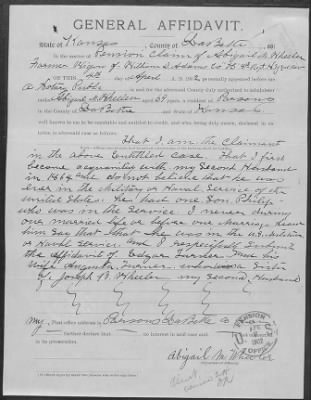 GENERAL AFFIDAVIT.
State of Kansas, County of Labette, ss:
In the matter of Pension Claim of Abigail M. Wheeler
Former Widow of William S. Adams Co.
ON THIS day of April A. D. 1902, personally appeared before me
a Notary Public in and for the aforesaid County duly authorized to administer
oaths Abigail M. Wheeler aged 59 years, a resident of Parsons
in the County of Labette and State of Kansas
well known to me to be reputable and entitled to credit, and who, being duly sworn, declared in
relation to aforesaid case as follows:
That I am the Claimant
in the above entitled Case. That I first
became acquainted with my Second Husband
in 1869 and do not believe that he was
ever in the Military or Naval Service of the
United States. he had one Son. Philip
who was in the Service. I never during
our married life or before our Marriage hear
him Say that he was in the U.S. Military
or Naval Service. and I respectfully Submit
the affidavit of Edgar Turner and his
Wife Augusta Turner. who was a Sister
of Joseph B. Wheeler my Second Husband
My Post-office address is Parsons Labette Co
further declare that no interest in said case and
Abigail M. Wheeler
PENSION
1902